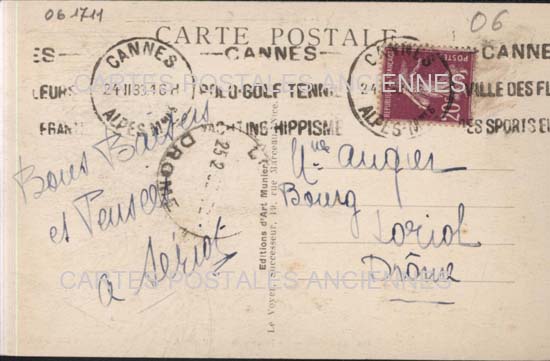 06 1711
06
CARTE POSTALE
CANNES
24-II 33
ALPES-Mmes
ES
LEURS
FRANCE
CANNES
POLO-GOLF-TENNIS
YACHTING-HIPPISME
CANNES
24
ALPES-Mmes
CANNE
VILLE DES FL
DES SPORTS E
POSTES
REPUBLIQUE FRANCAISE
20c
CARTES POSTALES ANCIENNES
DROME
25-2
Bons Baisers
et Pensées
a
Mlle
Bourg
Loriol
Drôme
Editions d'Art Munier
Le Voyer, Successeur, 19, rue Marceau, Nice.
CARTES POSTALES ANCIENNES